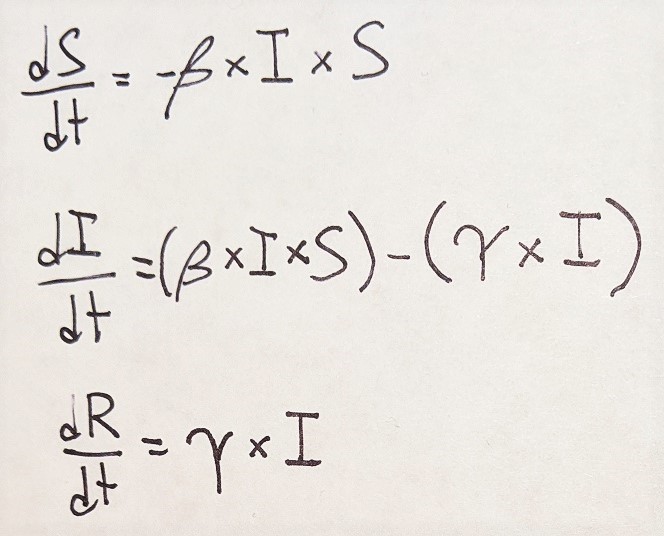 dS/dt = -β × I × S
dI/dt = (β × I × S) - (γ × I)
dR/dt = γ × I